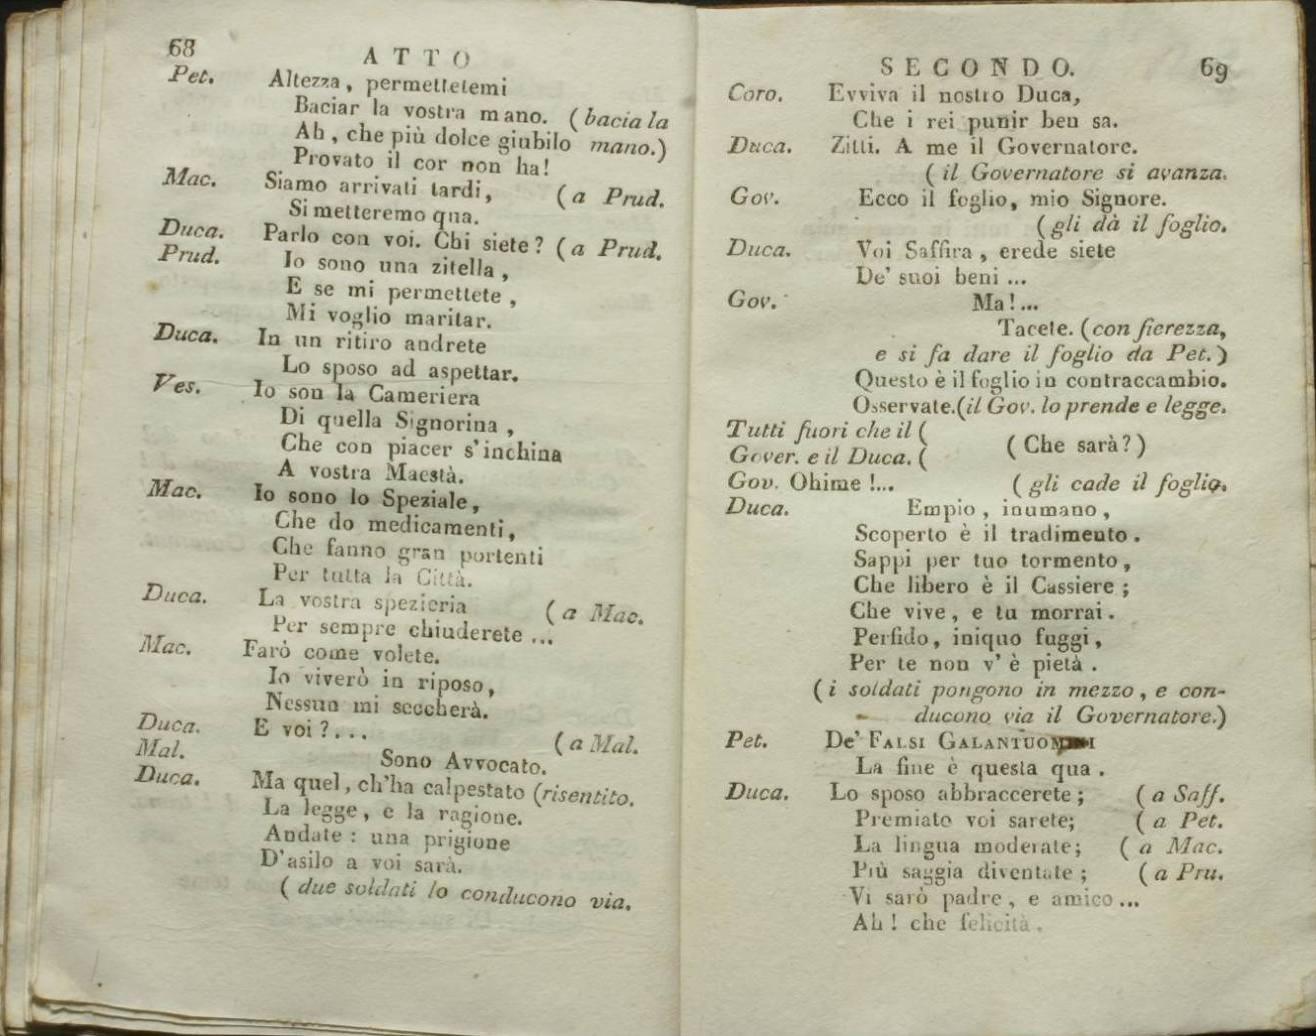 68
ATTO
Pet. Altezza, permettetemi
Baciar la vostra mano. (bacia la
Ah, che più dolce giubilo mano.)
Provato il cor non ha!
Mac. Siamo arrivati tardi, (a Prud.
Si metteremo qua.
Duca. Parlo con voi. Chi siete? (a Prud.
Prud. Io sono una zitella,
E se mi permettete,
Mi voglio maritar.
Duca. In un ritiro andrete
Lo sposo ad aspettar.
Ves. Io son la Cameriera
Di quella Signorina,
Che con piacer s'inchina
A vostra Maestà.
Mac. Io sono lo Speziale,
Che do medicamenti,
Che fanno gran portenti
Per tutta la Città.
Duca. La vostra spezieria (a Mac.
Per sempre chiuderete ...
Mac. Farò come volete.
Io viverò in riposo,
Nessun mi seccherà.
Duca. E voi?... (a Mal.
Mal. Sono Avvocato.
Duca. Ma quel, ch'ha calpestato (risentito.
La legge, e la ragione.
Andate: una prigione
D'asilo a voi sarà.
(due soldati lo conducono via.
SECONDO. 69
Coro. Evviva il nostro Duca,
Che i rei punir ben sa.
Duca. Zitti. A me il Governatore.
(il Governatore si avanza.
Gov. Ecco il foglio, mio Signore.
(gli dà il foglio.
Duca. Voi Saffira, erede siete
De' suoi beni ...
Gov. Ma!...
Tacete. (con fierezza,
e si fa dare il foglio da Pet.)
Questo è il foglio in contraccambio.
Osservate.(il Gov. lo prende e legge.
Tutti fuori che il (
Gover. e il Duca. ( (Che sarà?)
Gov. Ohime!... (gli cade il foglio.
Duca. Empio, inumano,
Scoperto è il tradimento.
Sappi per tuo tormento,
Che libero è il Cassiere;
Che vive, e tu morrai.
Perfido, iniquo fuggi,
Per te non v'è pietà.
(i soldati pongono in mezzo, e con-
ducono via il Governatore.)
Pet. De' FALSI GALANTUOMINI
La fine è questa qua.
Duca. Lo sposo abbraccerete; (a Saff.
Premiato voi sarete; (a Pet.
La lingua moderate; (a Mac.
Più saggia diventate; (a Pru.
Vi sarò padre, e amico...
Ah! che felicità.